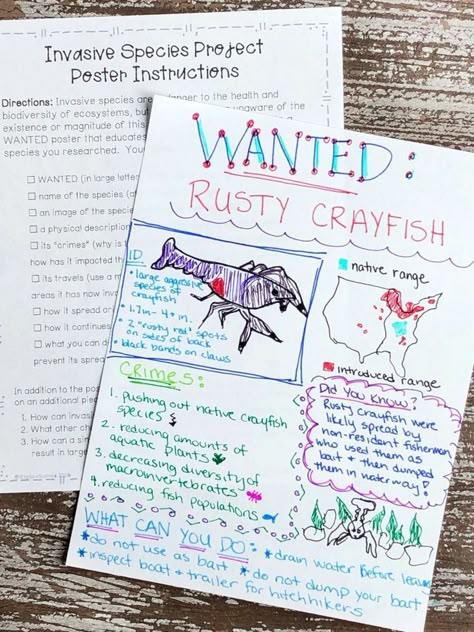 Invasive Species Project
Poster Instructions
Directions: Invasive species are
danger to the health and
biodiversity of ecosystems, but
unaware of the
existence or magnitude of this
WANTED poster that educates
species you researched. You
WANTED (in large letter
name of the species (a
an image of the spec
a physical description
its "crimes" (why is t
how has it impacted th
its travels (use a m
areas it has now inva
how it spread ar
how it continues
what you can d
prevent its sprea
In addition to the pos
on an additional piec
1. How can invasi
2. What other ch
3. How can a sin
result in large
WANTED:
RUSTY CRAYFISH
ID
• large aggressive
species of
crayfish
• 2 "rusty red" spots
on sides of back
• black bands on claws
native range
introduced range
CRIMES:
1. pushing out native crayfish
species
2. reducing amounts of
aquatic plants
3. decreasing diversity of
macroinvertebrates
4. reducing fish populations
Did you Know?
Rusty crayfish were
likely spread by
non-resident fisherman
who used them as
bait & then dumped
them in waterway!
WHAT CAN YOU DO:
* do not use as bait * drain water before leaving
* inspect boat & trailer for hitchhikers
* do not dump your bait